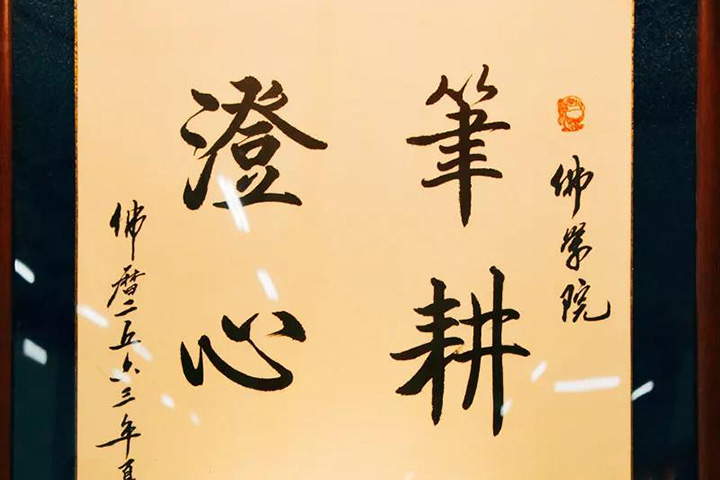 佛學院
筆耕
澄心
佛曆二五六三年夏